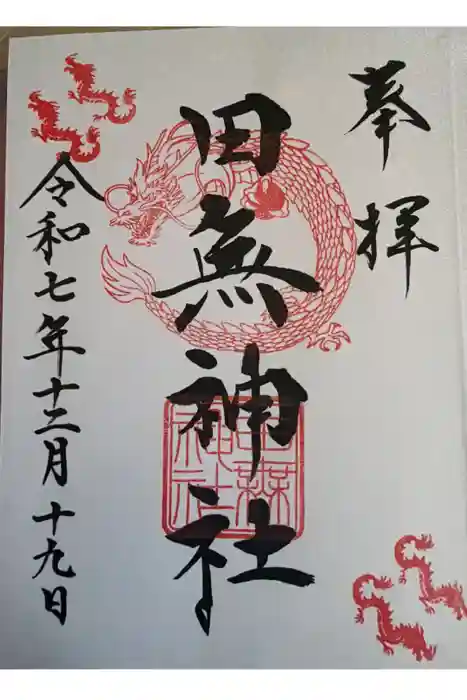 奉拝
田無神社
令和七年十二月十九日
田無神社